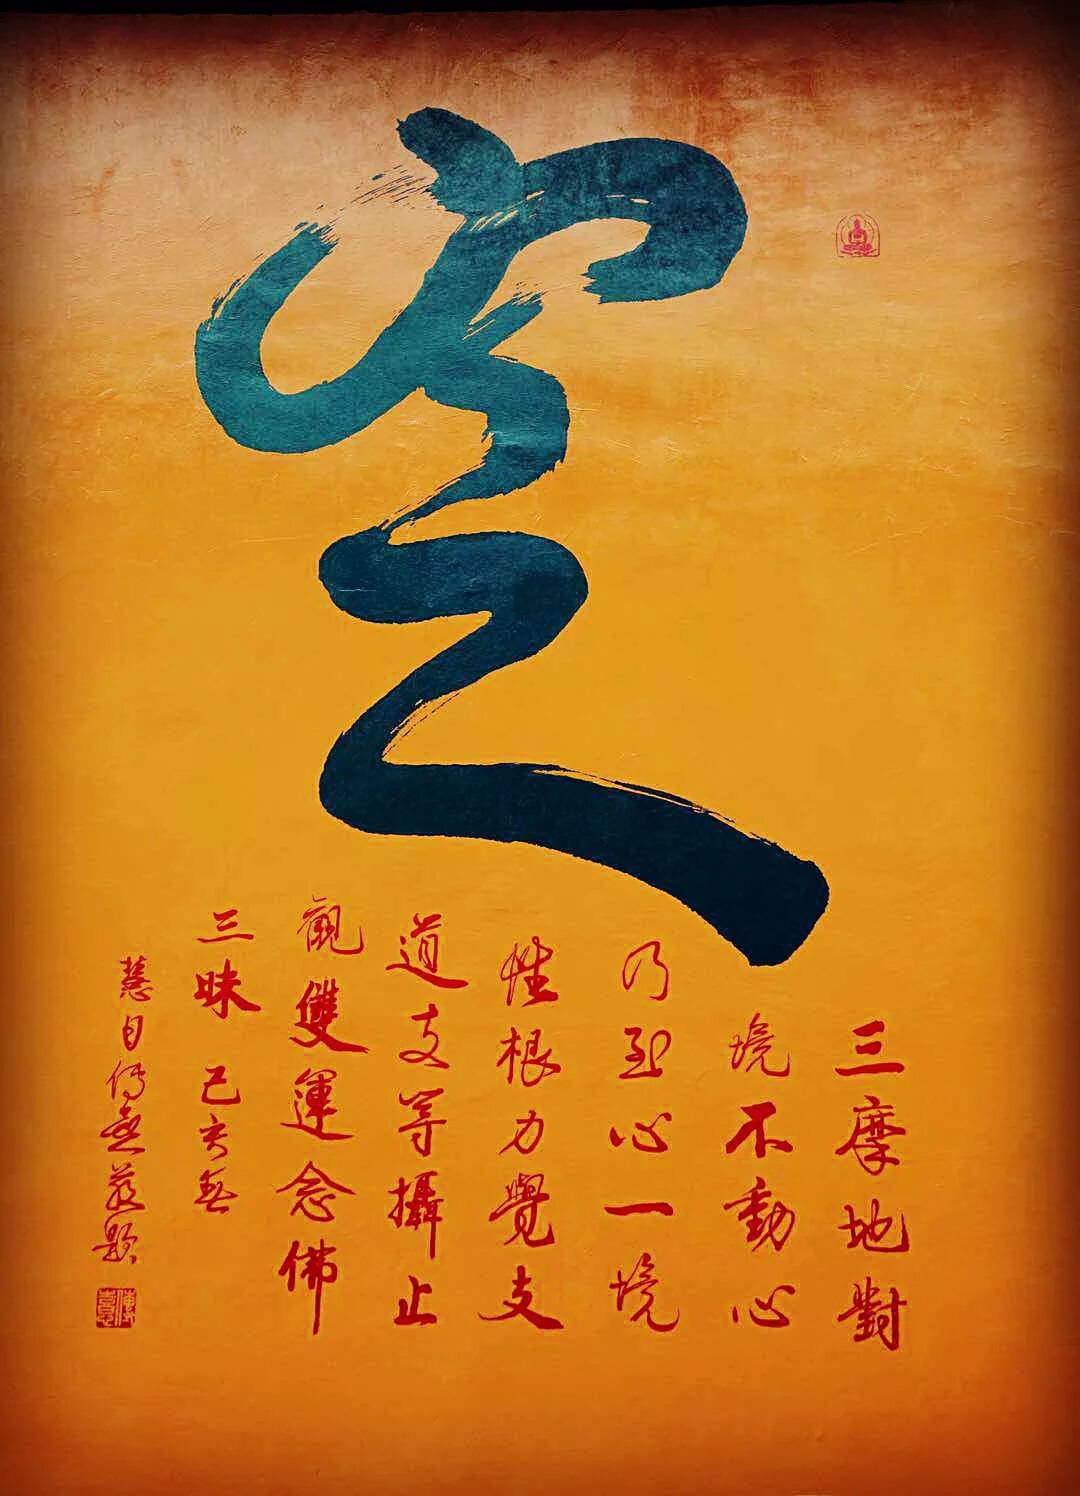 定
三摩地對
境不動心
乃至心一境
性根力覺支
道支等攝止
觀雙運念佛
三昧 己亥
慧日傳題